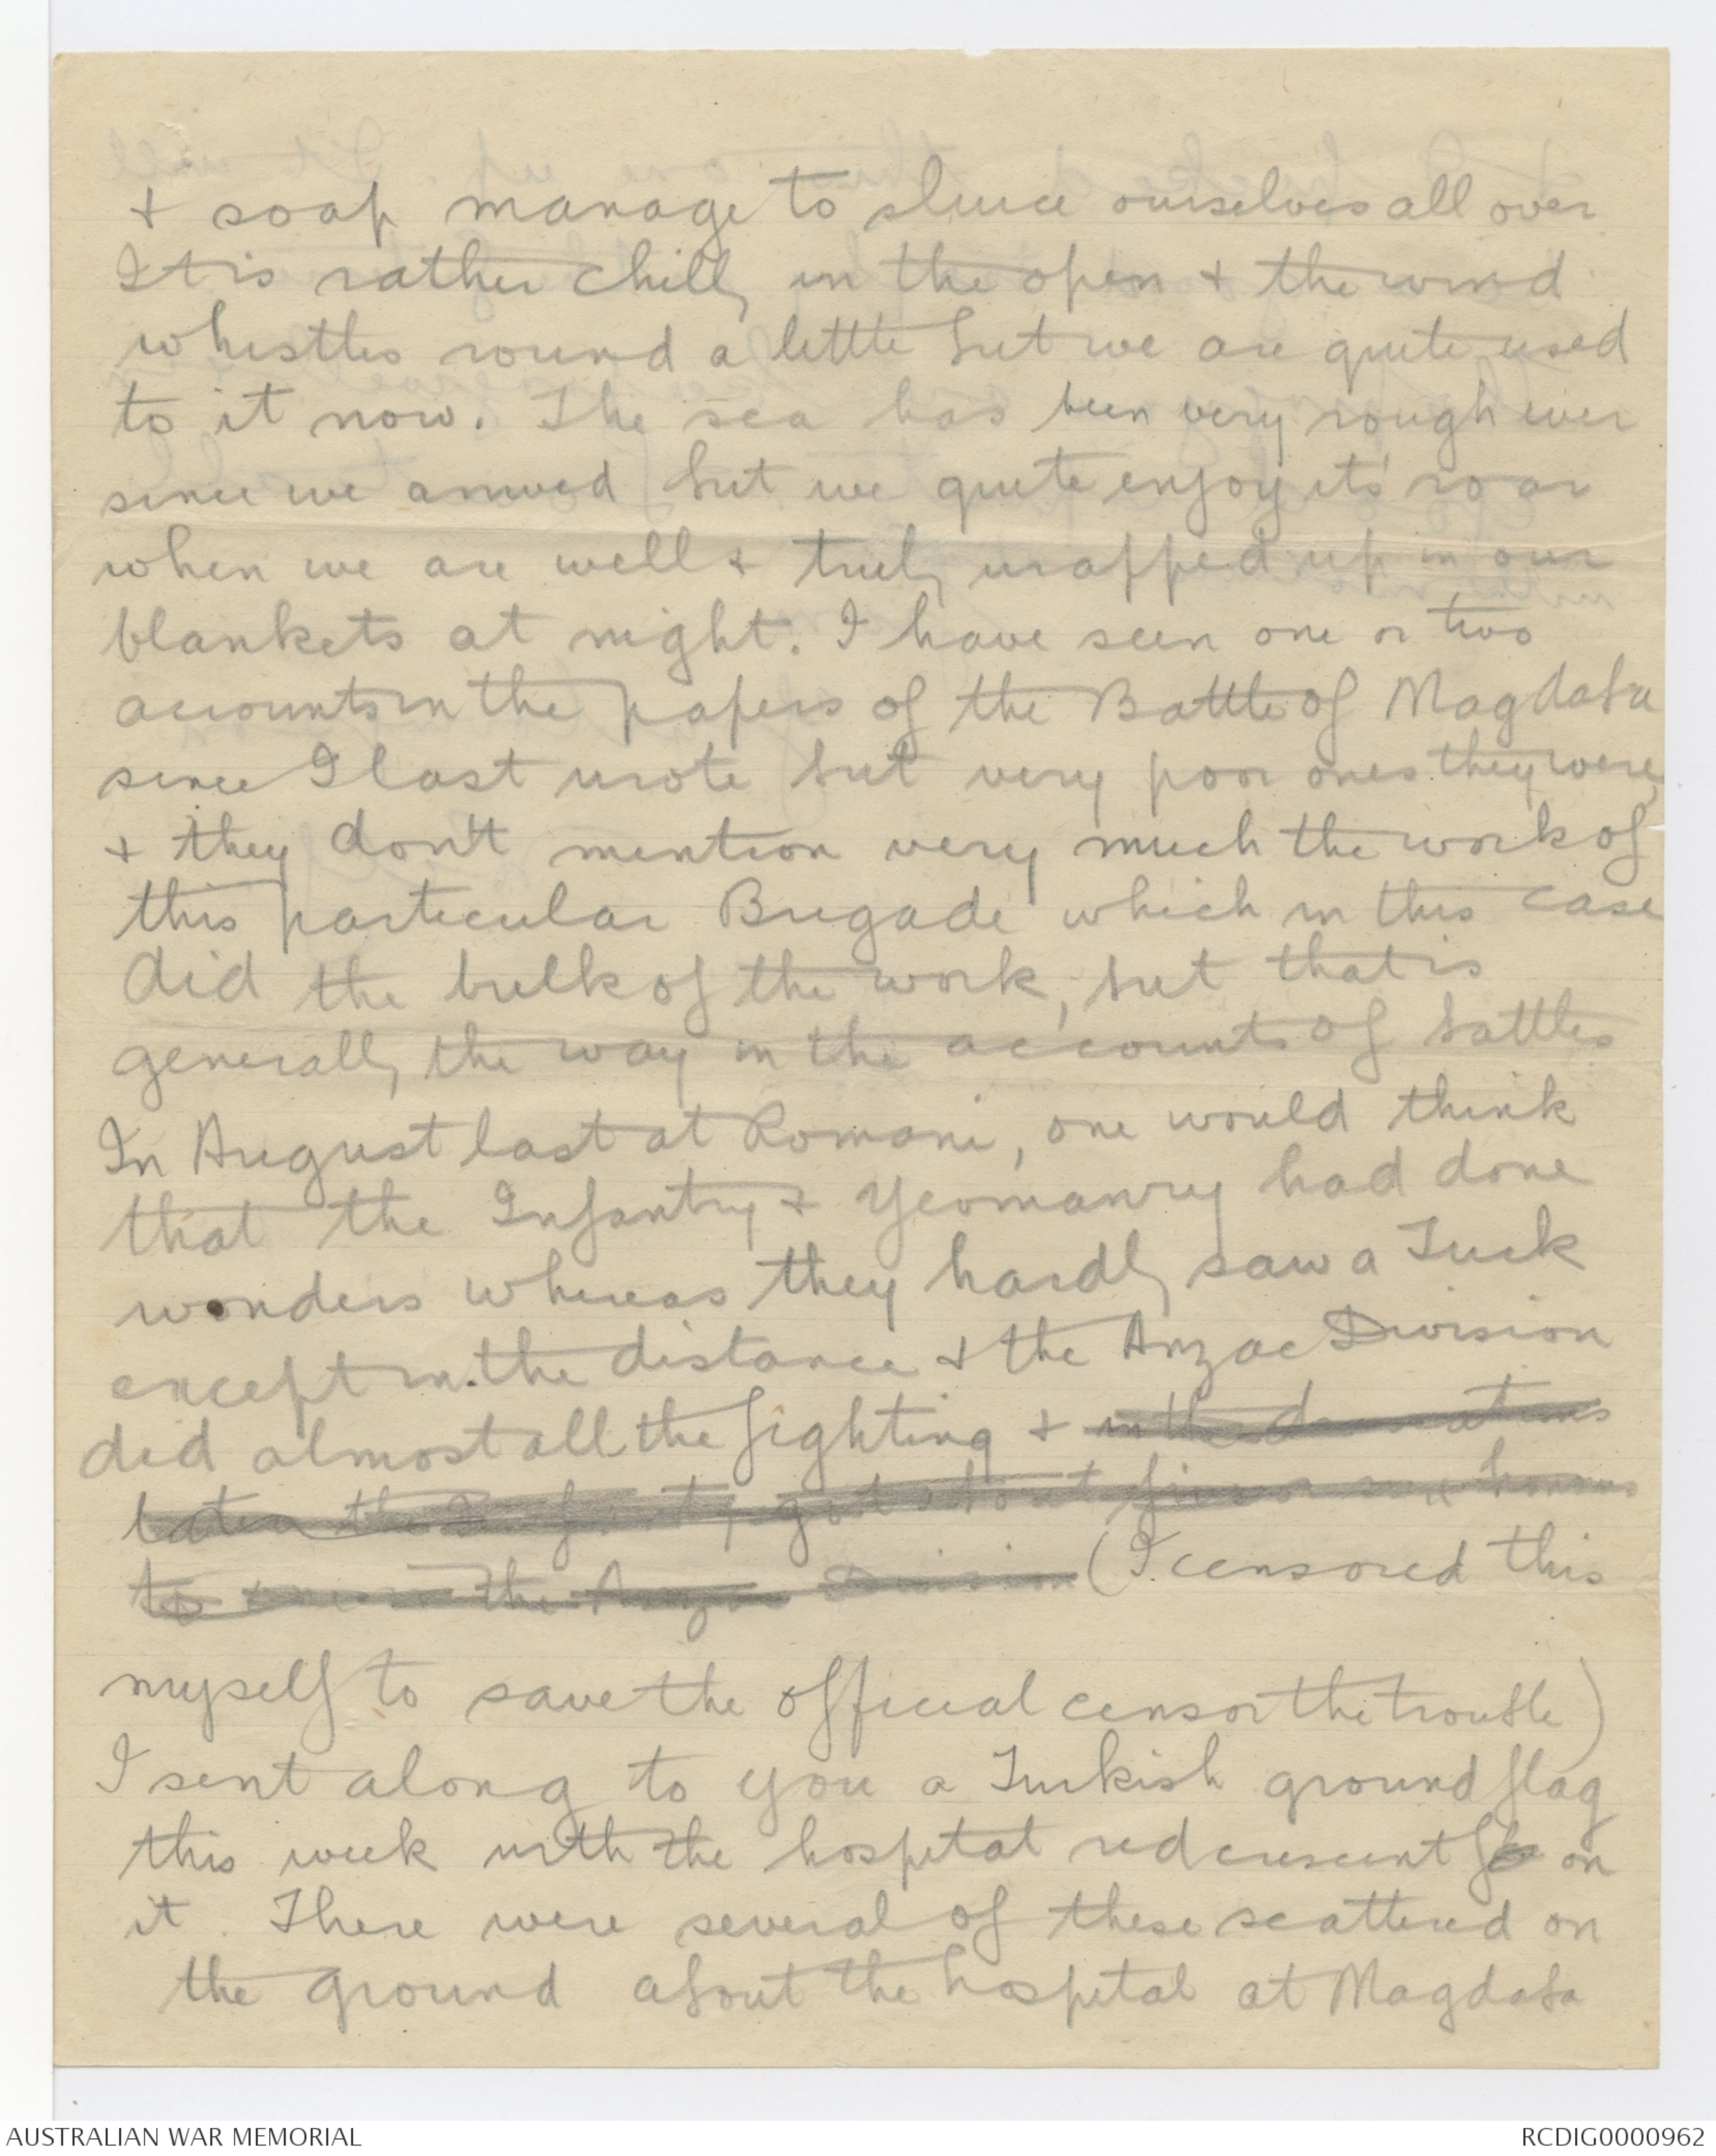 + soap manage to sluice ourselves all over
It is rather chilly in the open + the wind
whistles round a little but we are quite used
to it now. The sea has been very rough ever
since we arrived but we quite enjoy it's roar
when we are well + truly wrapped up in our
blankets at night. I have seen one or two
accounts in the papers of the Battle of Magdaba
since I last wrote but very poor ones they were,
+ they don't mention very much the work of
this particular Brigade which in this case
did the bulk of the work, but that is
generally the way in the accounts of battles
In August last at Romani, one would think
that the Infantry + Yeomanry had done
wonders whereas they hardly saw a Turk
except in the distance + the Anzac Division
did almost all the fighting + in the
later the Infantry got about five or six honours
to the Anzac Division (I censored this
myself to save the official censor the trouble)
I sent along to you a Turkish ground flag
this week with the hospital red crescent on
it. There were several of these scattered on
the ground about the hospital at Magdaba
AUSTRALIAN WAR MEMORIAL
RCDIG0000962